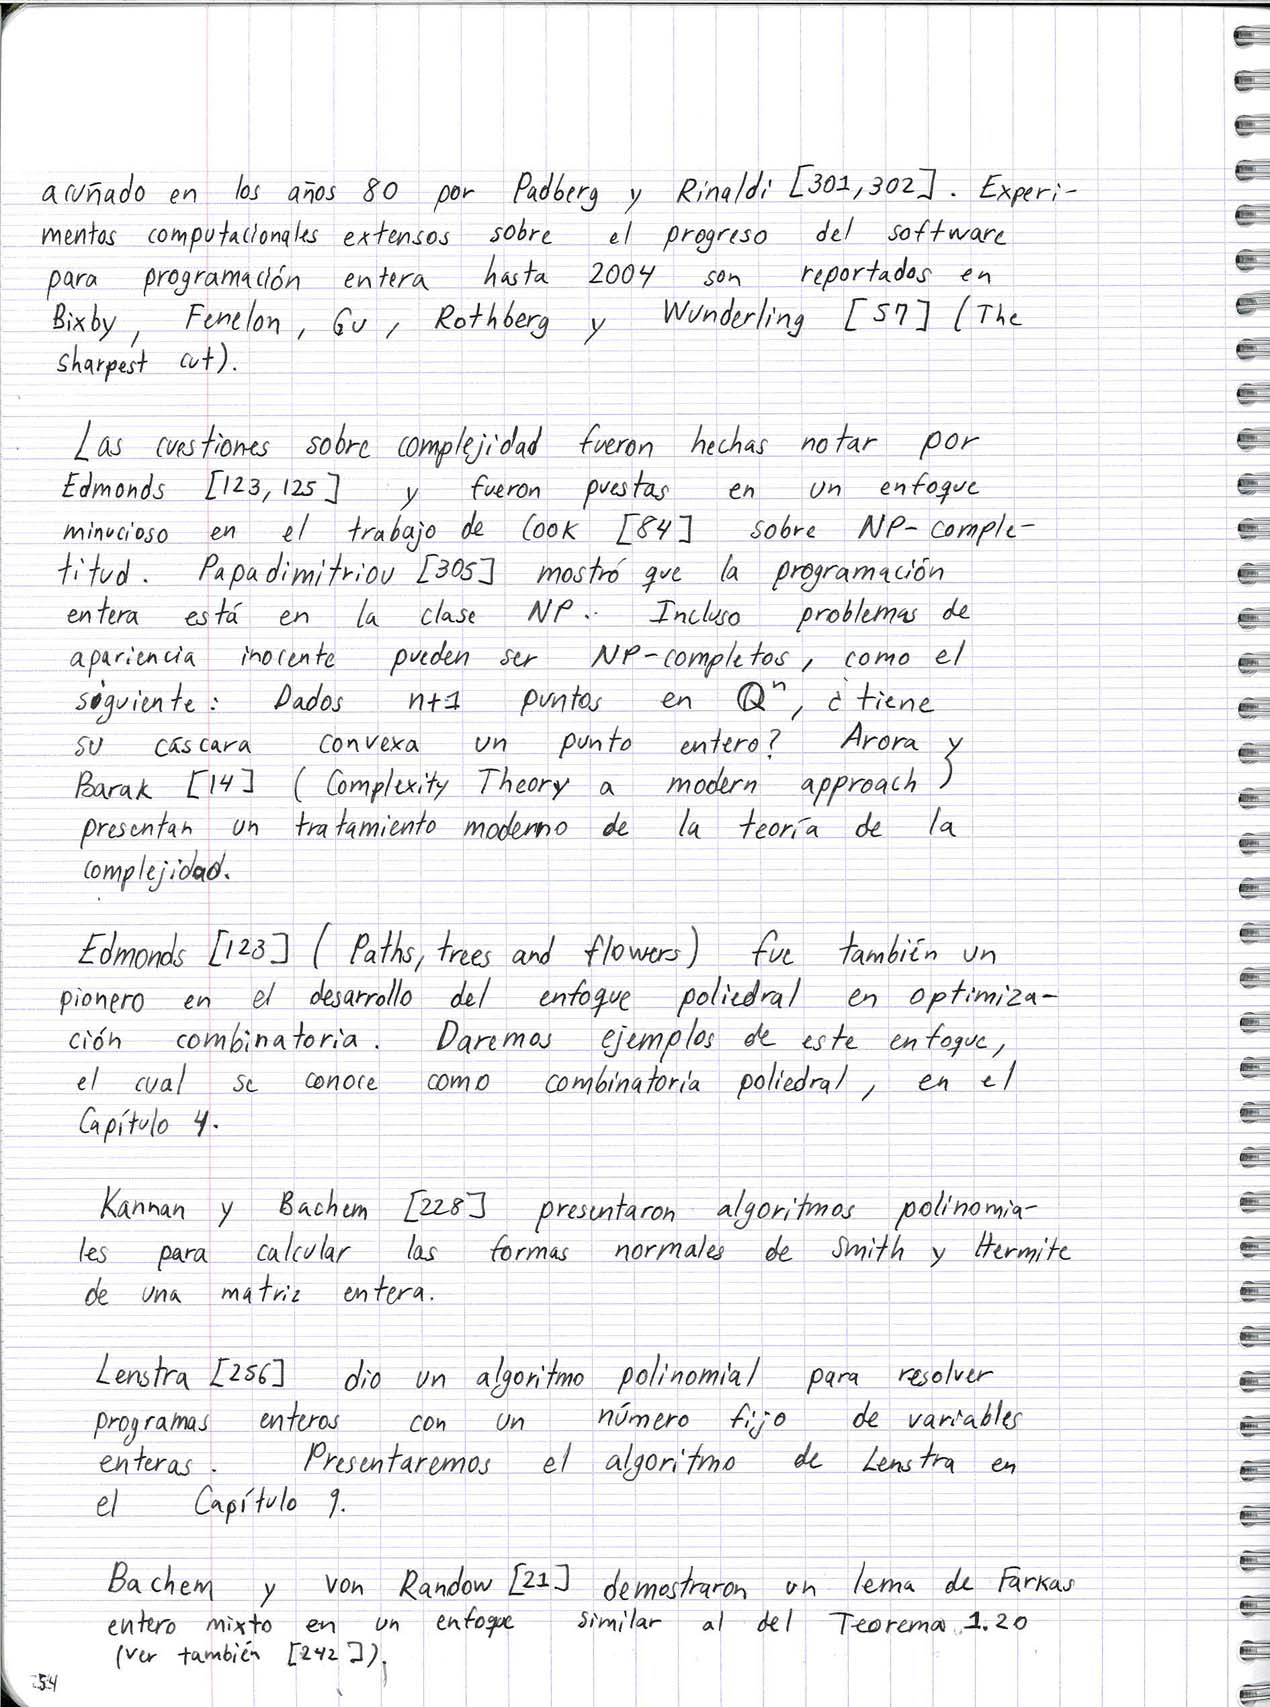 acuñado en los años 80 por Padberg y Rinaldi [301,302]. Experi-
mentos computacionales extensos sobre el progreso del software
para programación entera hasta 2004 son reportados en
Bixby, Fenelon, Gu, Rothberg y Wunderling [57] (The
sharpest cut).
Las cuestiones sobre complejidad fueron hechas notar por
Edmonds [123,125] y fueron puestas en un enfoque
minucioso en el trabajo de Cook [84] sobre NP-comple-
titud. Papadimitriou [305] mostró que la programación
entera está en la clase NP. Incluso problemas de
apariencia inocente pueden ser NP-completos, como el
siguiente: Dados n+1 puntos en ℚⁿ, ¿tiene
su cáscara convexa un punto entero? Arora y
Barak [14] (Complexity Theory a modern approach)
presentan un tratamiento moderno de la teoría de la
complejidad.
Edmonds [123] (Paths, trees and flowers) fue también un
pionero en el desarrollo del enfoque poliedral en optimiza-
ción combinatoria. Daremos ejemplos de este enfoque,
el cual se conoce como combinatoria poliedral, en el
Capítulo 4.
Kannan y Bachem [228] presentaron algoritmos polinomia-
les para calcular las formas normales de Smith y Hermite
de una matriz entera.
Lenstra [256] dio un algoritmo polinomial para resolver
programas enteros con un número fijo de variables
enteras. Presentaremos el algoritmo de Lenstra en
el Capítulo 9.
Bachem y von Randow [21] demostraron un lema de Farkas
entero mixto en un enfoque similar al del Teorema 1.20
(ver también [242]).
54